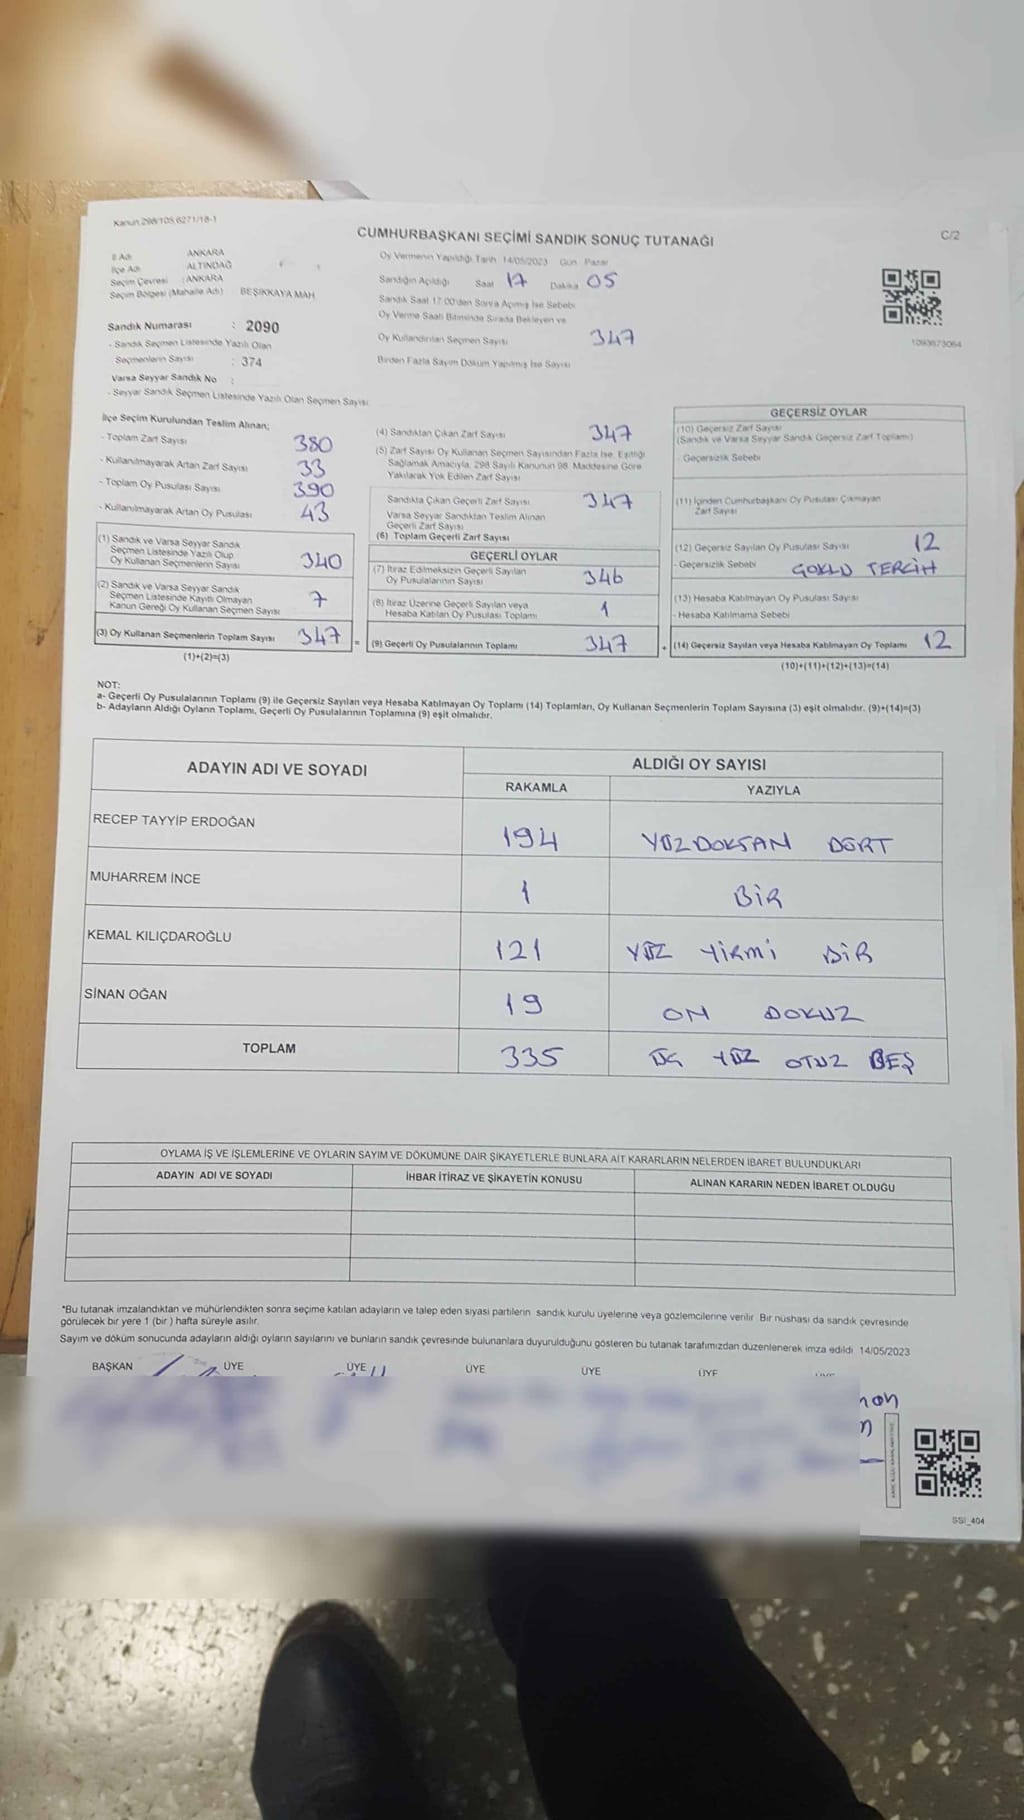 Kanun 298/105,6271/18-1
CUMHURBAŞKANI SEÇİMİ SANDIK SONUÇ TUTANAĞI
C/2
İl Adı ANKARA
İlçe Adı ALTINDAĞ
Seçim Çevresi : ANKARA
Seçim Bölgesi (Mahalle Adı) : BEŞİKKAYA MAH
Sandık Numarası : 2090
- Sandık Seçmen Listesinde Yazılı Olan
Seçmenlerin Sayısı : 374
Varsa Seyyar Sandık No :
- Seyyar Sandık Seçmen Listesinde Yazılı Olan Seçmen Sayısı
Oy Vermenin Yapıldığı Tarih 14/05/2023 Gün Pazar
Sandığın Açıldığı Saat 17 Dakika 05
Sandık Saat 17:00'den Sonra Açılmış İse Sebebi
Oy Verme Saati Bitiminde Sırada Bekleyen ve
Oy Kullandırılan Seçmen Sayısı 347
Birden Fazla Sayım Döküm Yapılmış İse Sayısı
1093673064
İlçe Seçim Kurulundan Teslim Alınan;
- Toplam Zarf Sayısı 380
- Kullanılmayarak Artan Zarf Sayısı 33
- Toplam Oy Pusulası Sayısı 390
- Kullanılmayarak Artan Oy Pusulası 43
(1) Sandık ve Varsa Seyyar Sandık
Seçmen Listesinde Yazılı Olup
Oy Kullanan Seçmenlerin Sayısı 340
(2) Sandık ve Varsa Seyyar Sandık
Seçmen Listesinde Kayıtlı Olmayan
Kanun Gereği Oy Kullanan Seçmen Sayısı 7
(3) Oy Kullanan Seçmenlerin Toplam Sayısı 347 =
(1)+(2)=(3)
(4) Sandıktan Çıkan Zarf Sayısı 347
(5) Zarf Sayısı Oy Kullanan Seçmen Sayısından Fazla İse, Eşitliği
Sağlamak Amacıyla, 298 Sayılı Kanunun 98. Maddesine Göre
Yakılarak Yok Edilen Zarf Sayısı
Sandıkta Çıkan Geçerli Zarf Sayısı 347
Varsa Seyyar Sandıktan Teslim Alınan
Geçerli Zarf Sayısı
(6) Toplam Geçerli Zarf Sayısı
GEÇERLİ OYLAR
(7) İtiraz Edilmeksizin Geçerli Sayılan
Oy Pusulalarının Sayısı 346
(8) İtiraz Üzerine Geçerli Sayılan veya
Hesaba Katılan Oy Pusulası Toplamı 1
(9) Geçerli Oy Pusulalarının Toplamı 347 +
GEÇERSİZ OYLAR
(10) Geçersiz Zarf Sayısı
(Sandık ve Varsa Seyyar Sandık Geçersiz Zarf Toplamı)
- Geçersizlik Sebebi
(11) İçinden Cumhurbaşkanı Oy Pusulası Çıkmayan
Zarf Sayısı
(12) Geçersiz Sayılan Oy Pusulası Sayısı 12
- Geçersizlik Sebebi ÇOKLU TERCİH
(13) Hesaba Katılmayan Oy Pusulası Sayısı
- Hesaba Katılmama Sebebi
(14) Geçersiz Sayılan veya Hesaba Katılmayan Oy Toplamı 12
(10)+(11)+(12)+(13)=(14)
NOT:
a- Geçerli Oy Pusulalarının Toplamı (9) ile Geçersiz Sayılan veya Hesaba Katılmayan Oy Toplamı (14) Toplamları, Oy Kullanan Seçmenlerin Toplam Sayısına (3) eşit olmalıdır. (9)+(14)=(3)
b- Adayların Aldığı Oyların Toplamı, Geçerli Oy Pusulalarının Toplamına (9) eşit olmalıdır.
ADAYIN ADI VE SOYADI ALDIĞI OY SAYISI
RAKAMLA YAZIYLA
RECEP TAYYİP ERDOĞAN 194 YÜZDOKSAN DÖRT
MUHARREM İNCE 1 BİR
KEMAL KILIÇDAROĞLU 121 YÜZ YİRMİ BİR
SİNAN OĞAN 19 ON DOKUZ
TOPLAM 335 ÜÇ YÜZ OTUZ BEŞ
OYLAMA İŞ VE İŞLEMLERİNE VE OYLARIN SAYIM VE DÖKÜMÜNE DAİR ŞİKAYETLERLE BUNLARA AİT KARARLARIN NELERDEN İBARET BULUNDUKLARI
ADAYIN ADI VE SOYADI İHBAR İTİRAZ VE ŞİKAYETİN KONUSU ALINAN KARARIN NEDEN İBARET OLDUĞU
*Bu tutanak imzalandıktan ve mühürlendikten sonra seçime katılan adayların ve talep eden siyasi partilerin sandık kurulu üyelerine veya gözlemcilerine verilir. Bir nüshası da sandık çevresinde
görülecek bir yere 1 (bir ) hafta süreyle asılır.
Sayım ve döküm sonucunda adayların aldığı oyların sayılarını ve bunların sandık çevresinde bulunanlara duyurulduğunu gösteren bu tutanak tarafımızdan düzenlenerek imza edildi 14/05/2023
BAŞKAN ÜYE ÜYE ÜYE ÜYE ÜYE
SSI_404